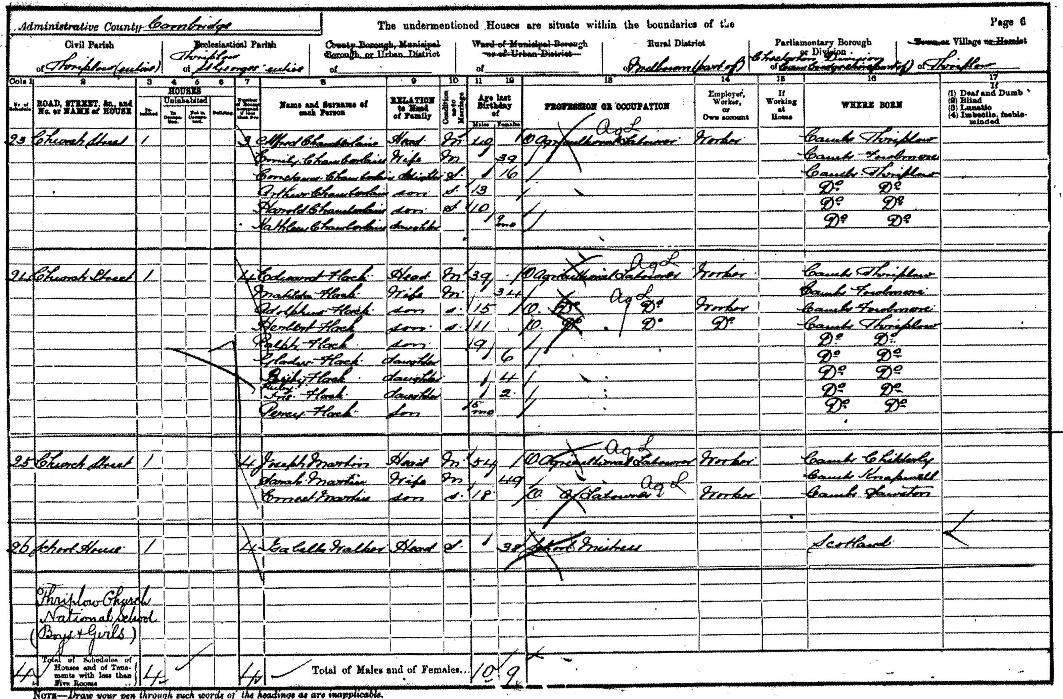 Administrative County Cambridge The undermentioned Houses are situate within the boundaries of the Page 6
Civil Parish Ecclesiastical Parish County Borough, Municipal Borough, or Urban District Ward of Municipal Borough or of Urban District Rural District Parliamentary Borough or Division Town or Village or Hamlet
of Thriplow (entire) of Thriplow of of Melbourn (part of) of of Thriplow
Cols 1 2 3 4 5 6 7 8 9 10 11 12 13 14 15 16 17
ROAD, STREET, &c., and No. or NAME of HOUSE HOUSES Uninhabited Building Name and Surname of each Person RELATION to Head of Family Condition as to Marriage Age last Birthday of Males Females PROFESSION OR OCCUPATION Employer, Worker, or Own account If Working at Home WHERE BORN If
(1) Deaf and Dumb
(2) Blind
(3) Lunatic
(4) Imbecile, feeble-minded
Ag L
23 Church Street 1 3 Alfred Chamberlain Head M 49 Agricultural Labourer Worker Cambs Thriplow
Emily Chamberlain Wife M 39 Cambs Foulmore
Constance Chamberlain daughter S 16 Cambs Thriplow
Arthur Chamberlain son S 13 Do Do
Harold Chamberlain son S 10 Do Do
Kathleen Chamberlain daughter 9 mo Do Do
Ag L
24 Church Street 1 4 Edward Flack Head M 39 Agricultural Labourer Worker Cambs Thriplow
Matilda Flack Wife M 34 Cambs Foulmore
Ag L
Adolphus Flack son S 15 Do Do Worker Cambs Foulmore
Herbert Flack son S 11 Do Do Do Cambs Thriplow
Ralph Flack son 9 Do Do
Gladys Flack daughter 6 Do Do
Flack daughter 4 Do Do
Flack daughter 2 Do Do
Percy Flack son 5 mo Do Do
Ag L
25 Church Street 1 4 Joseph Martin Head M 54 Agricultural Labourer Worker Cambs Childerly
Sarah Martin Wife M 49 Cambs Knapwell
Ernest Martin son S 18 Labourer Ag L Worker Cambs Sawston
26 School House 1 4 Isabella Walker Head S 38 School Mistress Scotland
Thriplow Church
National School
(Boys & Girls)
4 Total of Schedules of Houses and of Tenements with less than Five Rooms 4 4 Total of Males and of Females... 10 9
NOTE—Draw your pen through such words of the headings as are inapplicable.